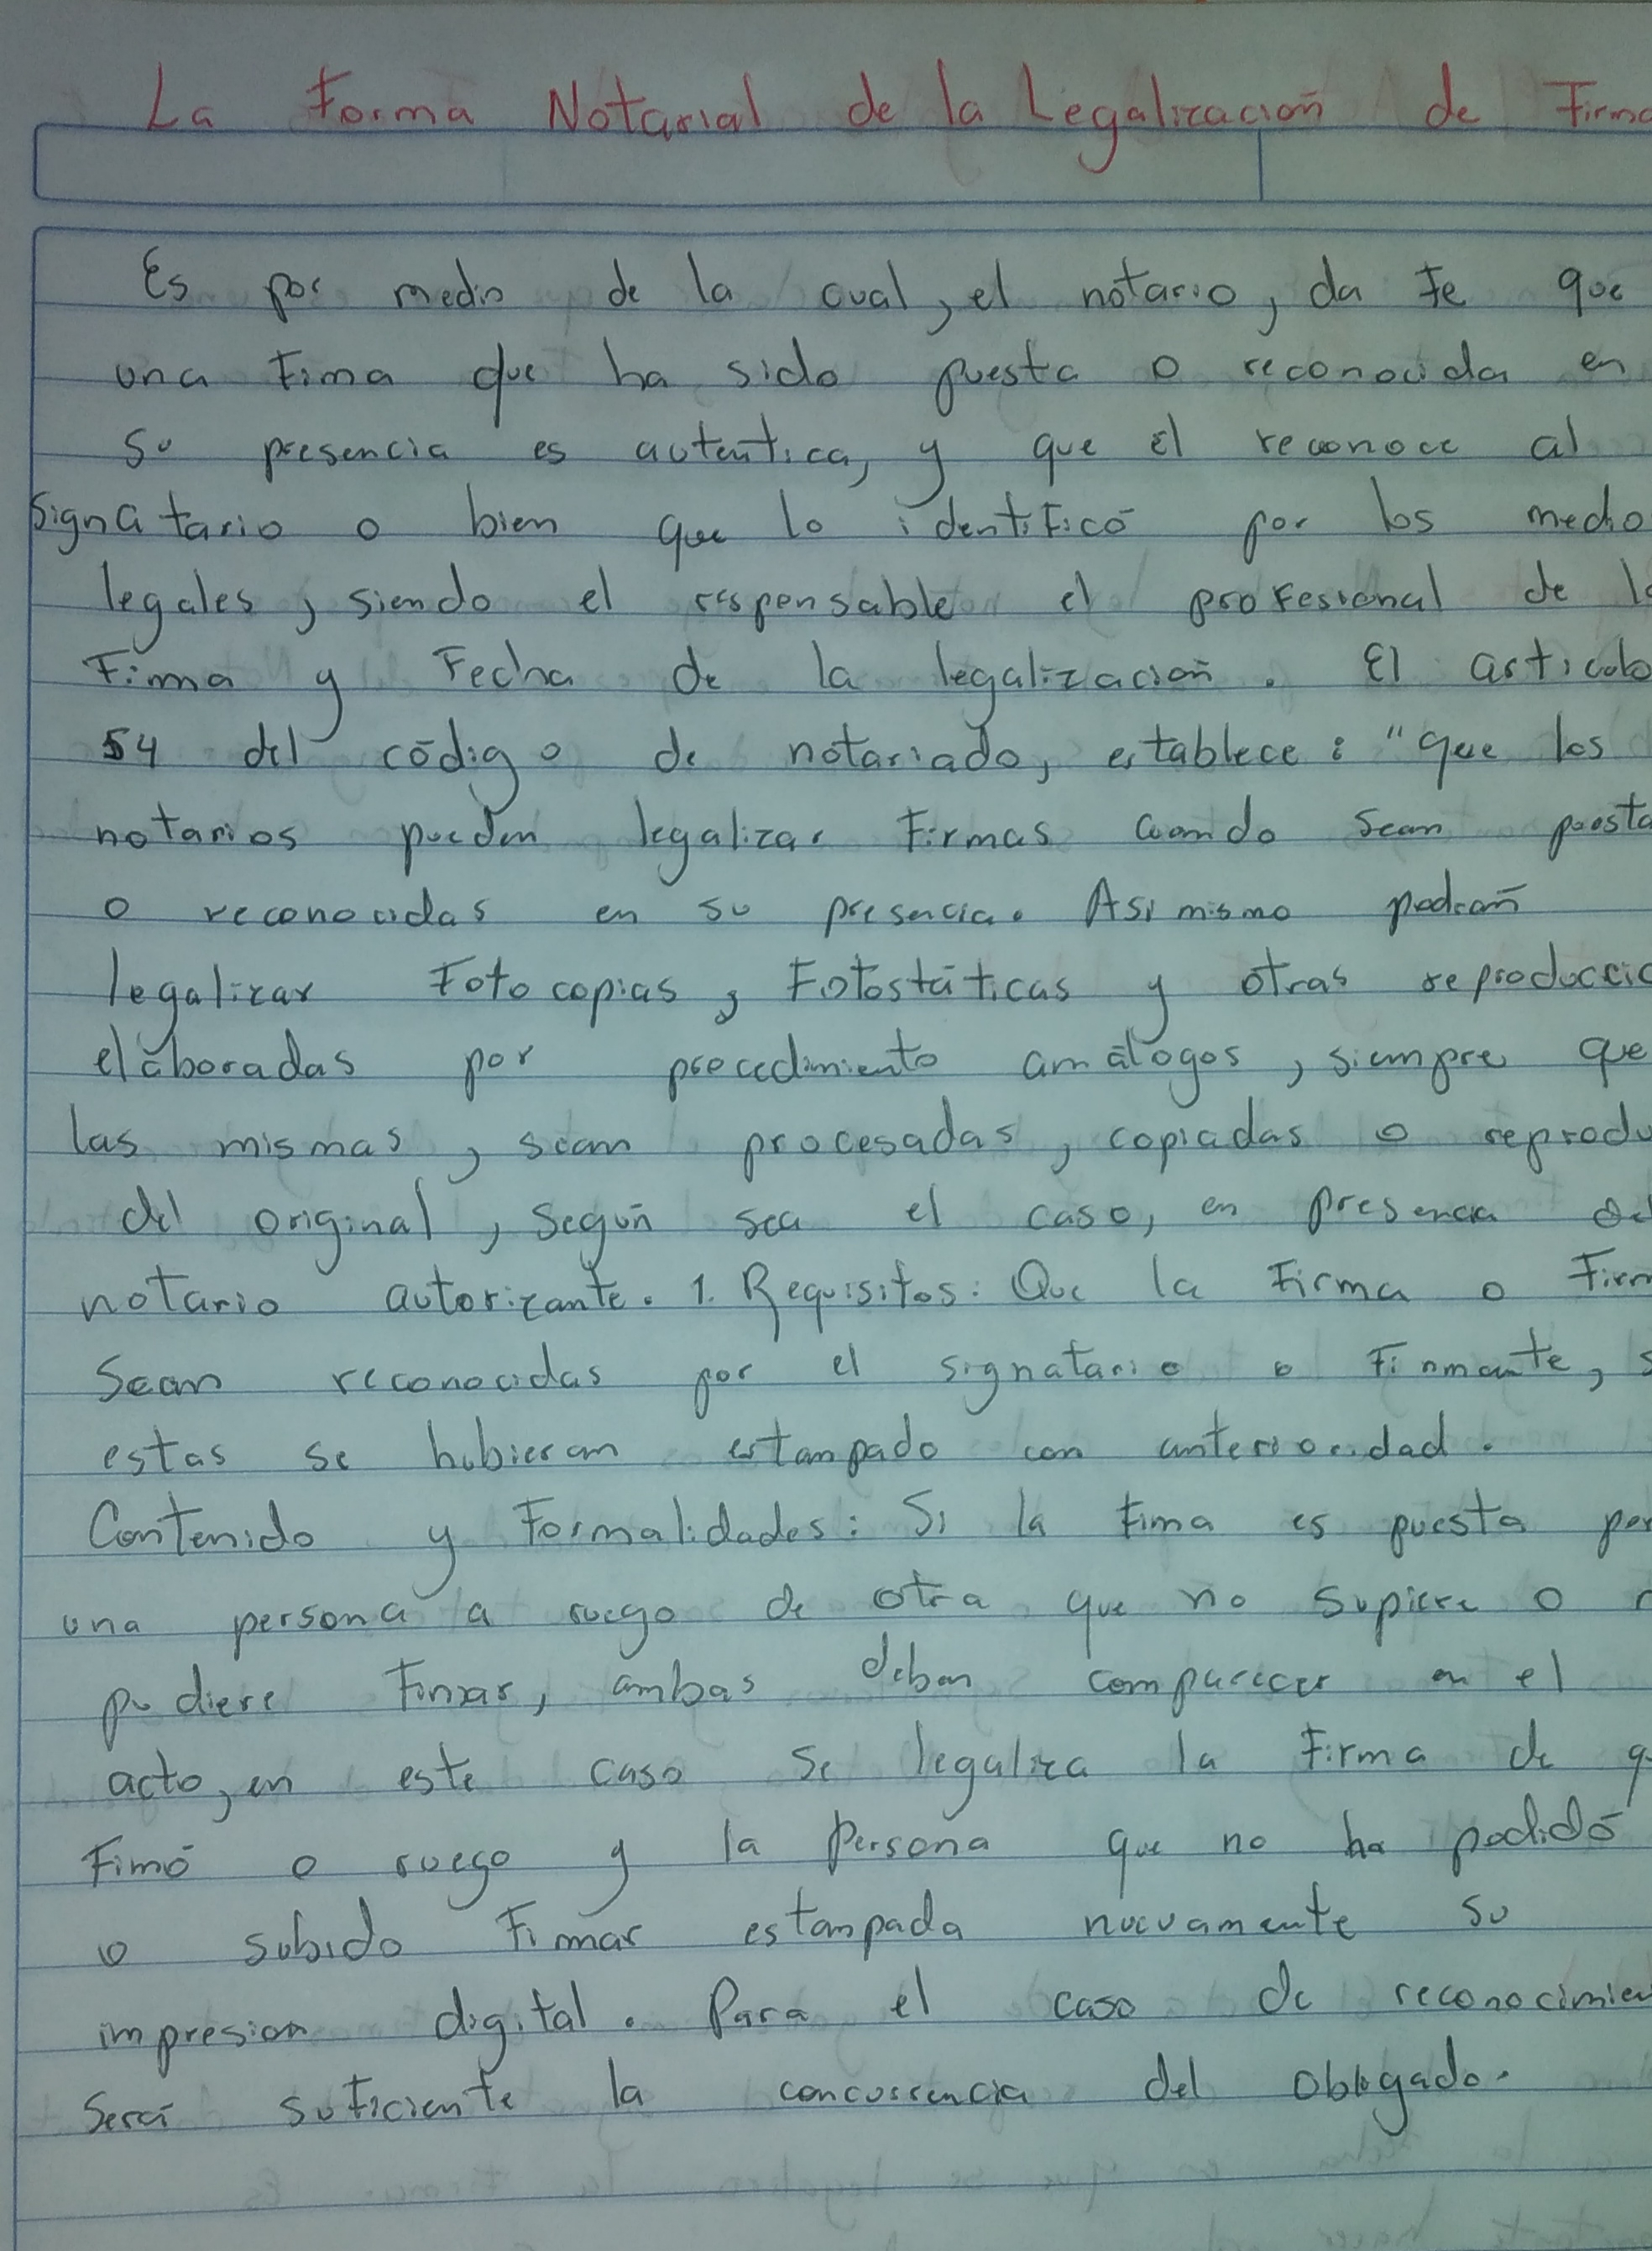 La Forma Notarial de la Legalización de Firma
Es por medio de la cual, el notario, da fe que
una fima que ha sido puesta o reconocida en
su presencia es auténtica, y que él reconoce al
signatario o bien que lo identificó por los medio
legales, siendo el responsable el profesional de la
Fima y Fecha de la legalización. El articulo
54 del código de notariado, establece: "que los
notarios pueden legalizar Firmas cuando sean puesta
o reconocidas en su presencia. Asi mismo podrán
legalizar Fotocopias, Fotostáticas y otras reproduccio
elaboradas por procedimiento análogos, siempre que
las mismas, sean procesadas, copiadas o reprodu
del original, según sea el caso, en presencia del
notario autorizante. 1. Requisitos: Que la Firma o Firm
Sean reconocidas por el signatario o Firmante, s
estas se hubieran estampado con anterioridad.
Contenido y Formalidades: Si la fima es puesta por
una persona a ruego de otra que no supiere o n
pudiere Firmar, ambas deben comparecer en el
acto, en este caso se legaliza la Firma de q
Fimó o ruego y la Persona que no ha podidó
o subido Fimar estampada nuevamente su
impresion digital. Para el caso de reconocimien
Será suficiente la concurrencia del obligado.